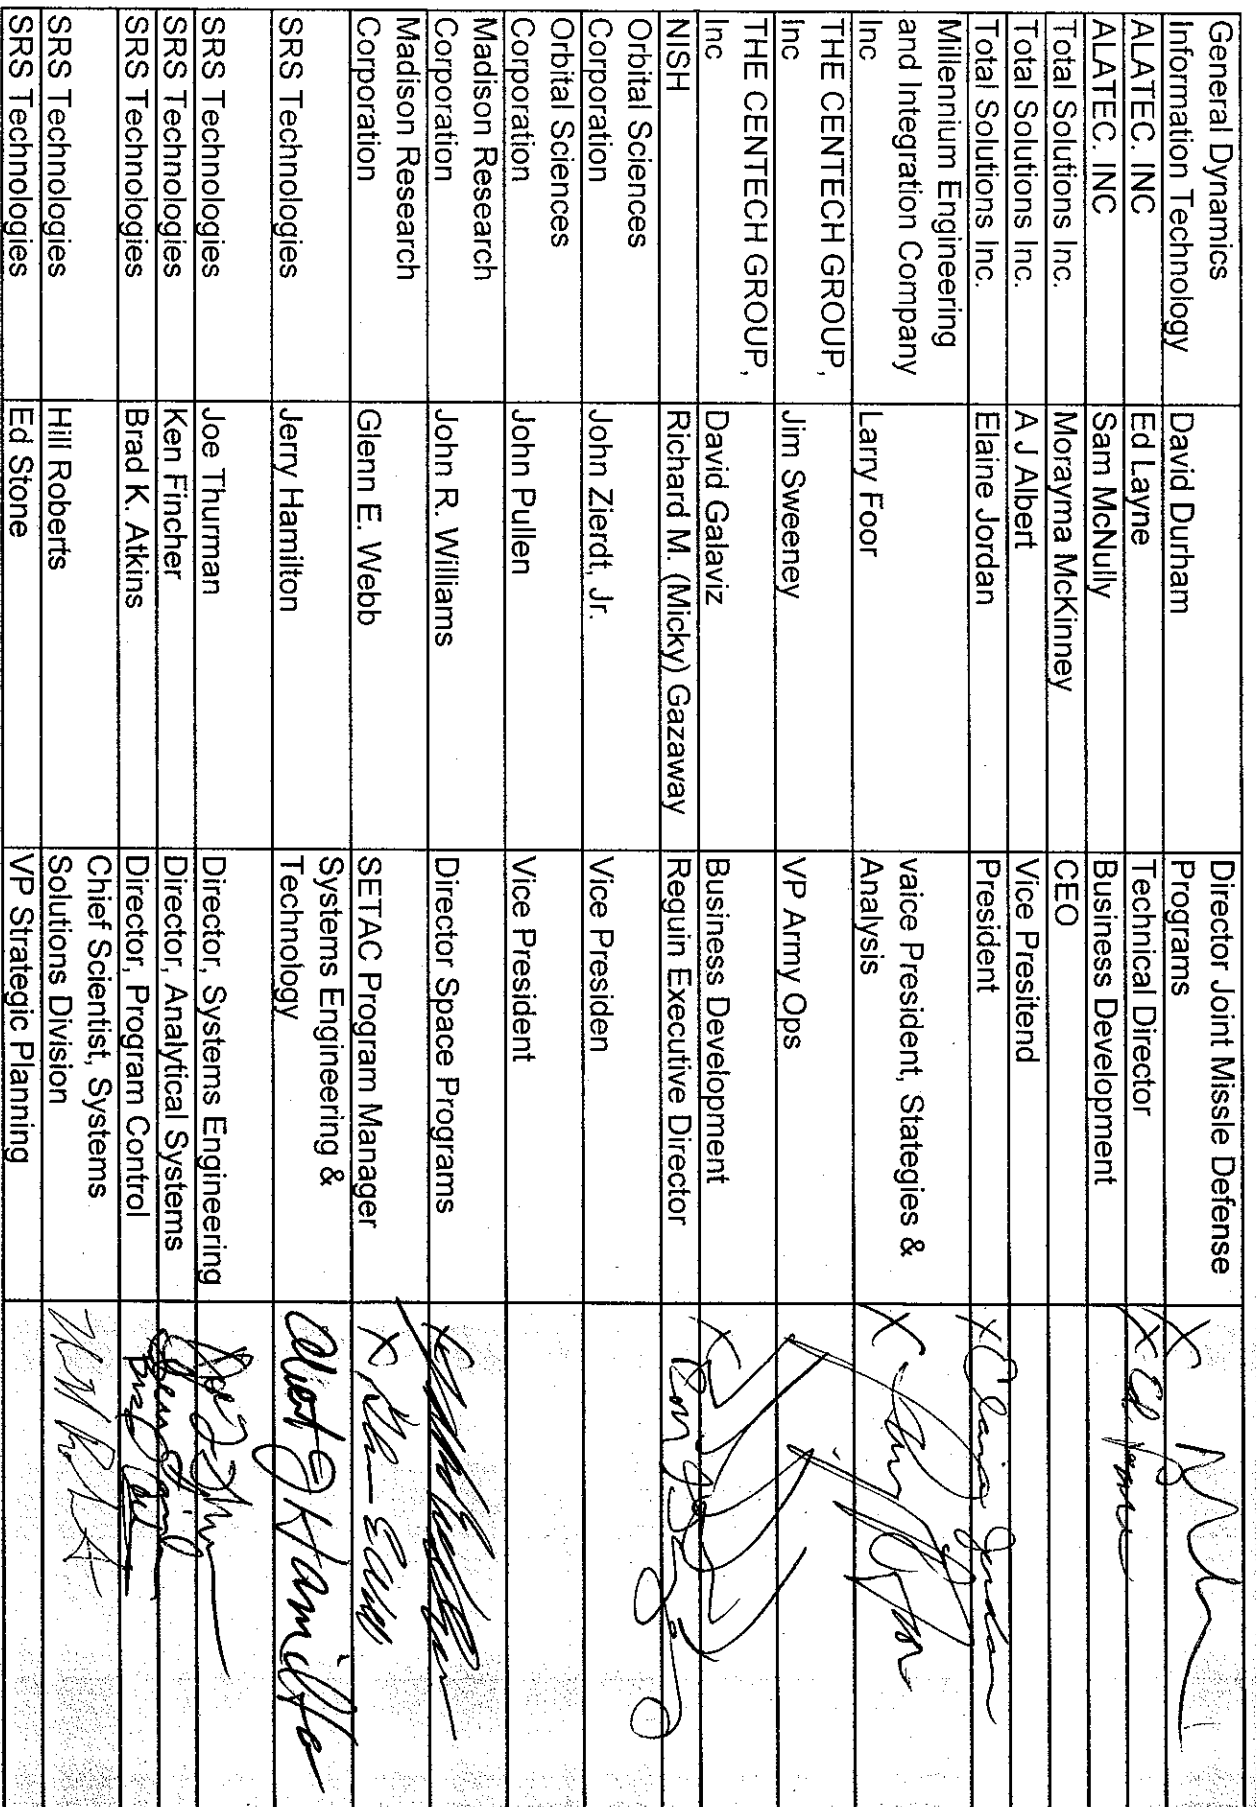 General Dynamics
Information Technology David Durham Director Joint Missle Defense
Programs
ALATEC. INC Ed Layne Technical Director X Ed Layne
ALATEC. INC Sam McNully Business Development
Total Solutions Inc. Morayma McKinney CEO
Total Solutions Inc. A J Albert Vice Presitend
Total Solutions Inc. Elaine Jordan President X Elaine Jordan
Millennium Engineering
and Integration Company
Inc Larry Foor vaice President, Stategies &
Analysis X
THE CENTECH GROUP,
Inc Jim Sweeney VP Army Ops
THE CENTECH GROUP,
Inc David Galaviz Business Development X
NISH Richard M. (Micky) Gazaway Reguin Executive Director
Orbital Sciences
Corporation John Zierdt, Jr. Vice Presiden
Orbital Sciences
Corporation John Pullen Vice President
Madison Research
Corporation John R. Williams Director Space Programs
Madison Research
Corporation Glenn E. Webb SETAC Program Manager X Glenn E Webb
SRS Technologies Jerry Hamilton Systems Engineering &
Technology Hamilton
SRS Technologies Joe Thurman Director, Systems Engineering
SRS Technologies Ken Fincher Director, Analytical Systems
SRS Technologies Brad K. Atkins Director, Program Control
SRS Technologies Hill Roberts Chief Scientist, Systems
Solutions Division
SRS Technologies Ed Stone VP Strategic Planning